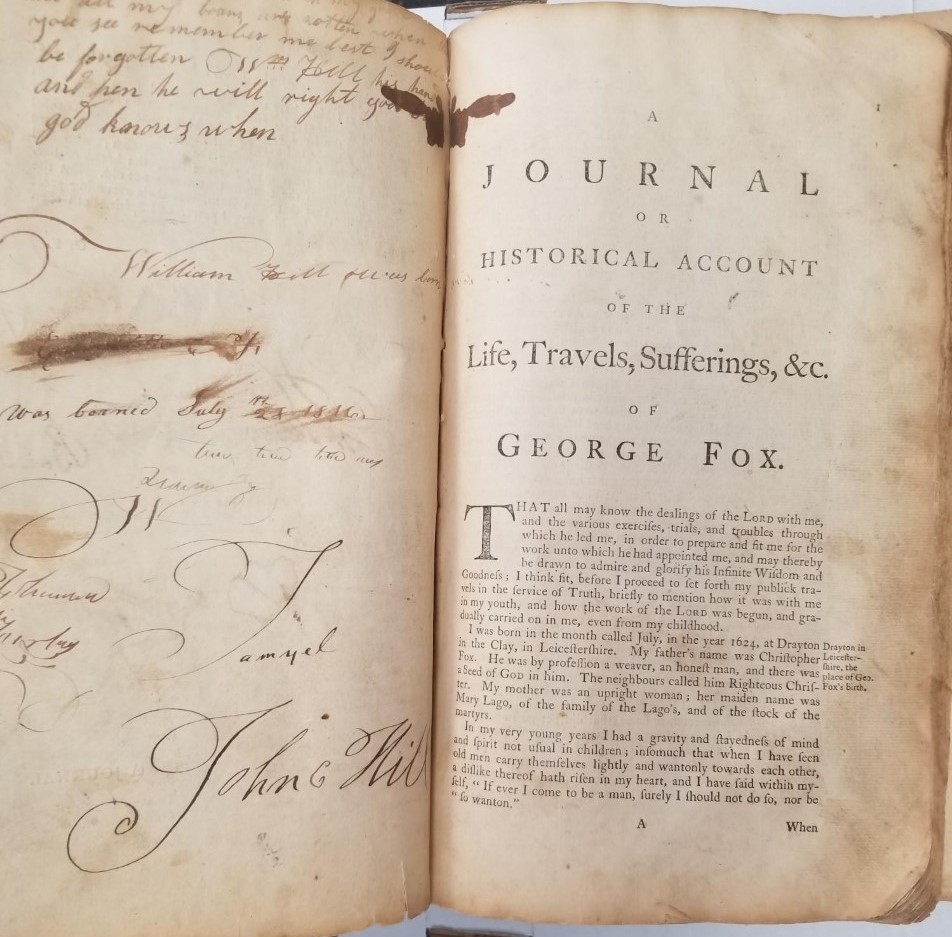 all my bones are rotten when
you se remember me lest I should
be forgotten Wm his hand
and pen he will right good
god knows when
William was born
was borned July 28 1816
W
Samuel
John Hill
1
A
JOURNAL
OR
HISTORICAL ACCOUNT
OF THE
Life, Travels, Sufferings, &c.
OF
GEORGE FOX.
THAT all may know the dealings of the LORD with me,
and the various exerciſes, trials, and troubles through
which he led me, in order to prepare and fit me for the
work unto which he had appointed me, and may thereby
be drawn to admire and glorify his Infinite Wiſdom and
Goodneſs; I think fit, before I proceed to ſet forth my publick tra-
vels in the ſervice of Truth, briefly to mention how it was with me
in my youth, and how the work of the LORD was begun, and gra-
dually carried on in me, even from my childhood.
I was born in the month called July, in the year 1624, at Drayton
in the Clay, in Leiceſterſhire. My father's name was Chriſtopher
Fox. He was by profeſſion a weaver, an honeſt man, and there was
a Seed of GOD in him. The neighbours called him Righteous Chriſ-
ter. My mother was an upright woman; her maiden name was
Mary Lago, of the family of the Lago's, and of the ſtock of the
martyrs.
Drayton in
Leiceſter-
ſhire, the
place of Geo.
Fox's birth.
In my very young years I had a gravity and ſtayedneſs of mind
and ſpirit not uſual in children; inſomuch that when I have ſeen
old men carry themſelves lightly and wantonly towards each other,
a diſlike thereof hath riſen in my heart, and I have ſaid within my-
ſelf, "If ever I come to be a man, ſurely I ſhould not do ſo, nor be
"ſo wanton."
A
When